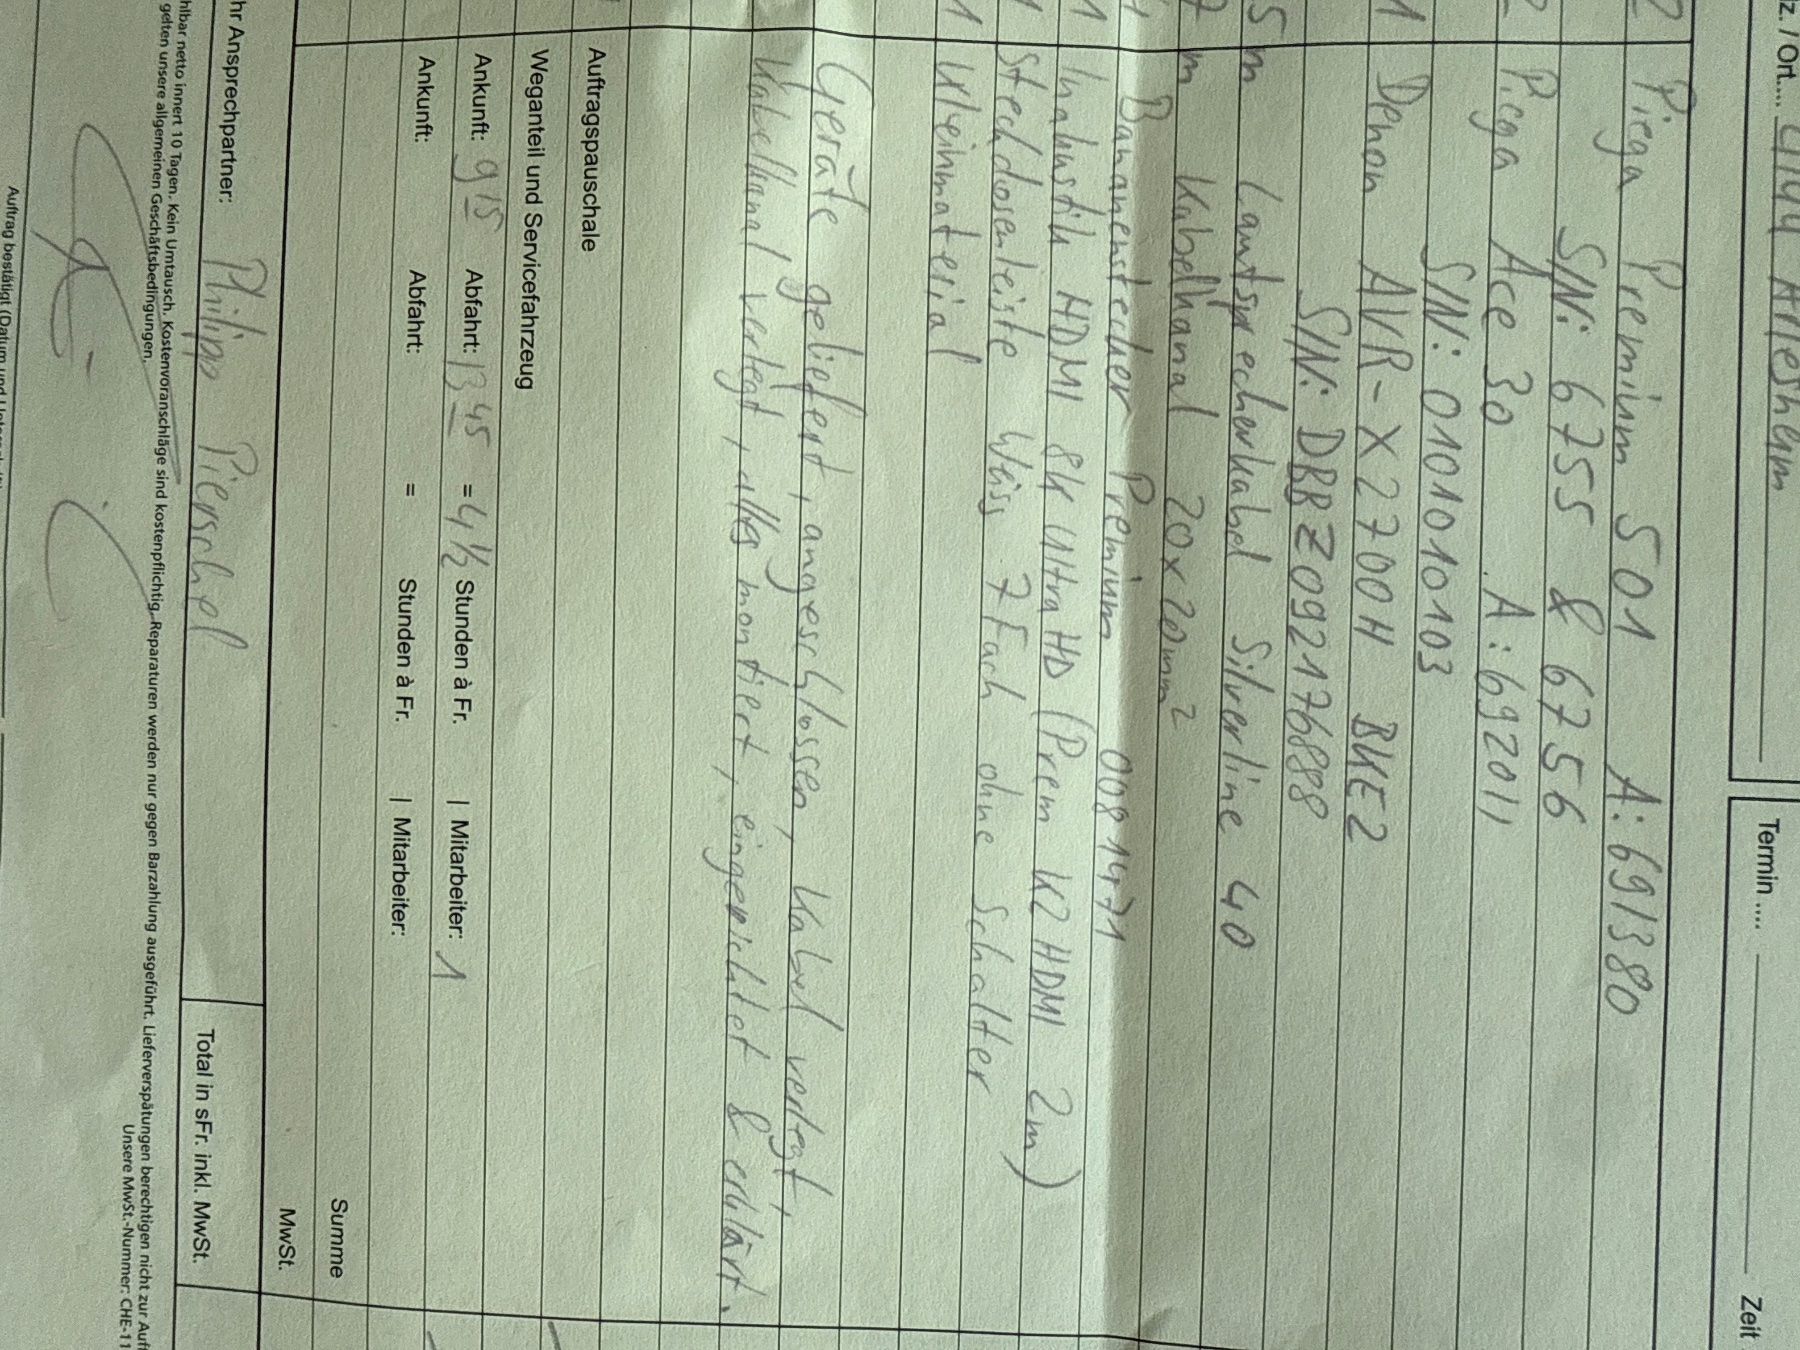 z. / Ort.... 4144 Arlesheim
Termin .... Zeit
2 Piega Premium 501 A: 691380
S/N: 6755 & 6756
2 Piega Ace 30 A: 692011
S/N: 01010101 0103
1 Denon AVR-X2700H BKE2
S/N: DBBZ092176888
5 m Lautsprecherkabel Silverline 40
7 m Kabelkanal 20x20mm²
Bananenstecker Premium 00814471
1 Inakustik HDMI 8K Ultra HD (Prem K2 HDMI 2m)
1 Steckdosenleiste Weiss 7Fach ohne Schalter
1 Kleinmaterial
Geräte geliefert, angeschlossen, Kabel verlegt,
Kabelkanal verlegt, alles montiert, eingerichtet & erklärt.
Auftragspauschale
Weganteil und Servicefahrzeug
Ankunft: 9 15 Abfahrt: 13 45 = 4 ½ Stunden à Fr. | Mitarbeiter: 1
Ankunft: Abfahrt: = Stunden à Fr. | Mitarbeiter:
Summe
MwSt.
hr Ansprechpartner: Philipp Pierschel Total in sFr. inkl. MwSt.
hlbar netto innert 10 Tagen. Kein Umtausch. Kostenvoranschläge sind kostenpflichtig. Reparaturen werden nur gegen Barzahlung ausgeführt. Lieferverspätungen berechtigen nicht zur Auf
gelten unsere allgemeinen Geschäftsbedingungen. Unsere MwSt.-Nummer: CHE-11
Auftrag bestätigt (Datum und